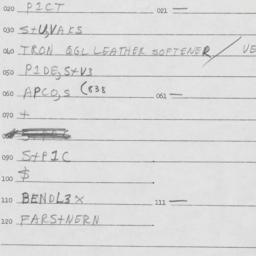 020 P1CT 021 —
030 S+U,VAKS
040 TRON QGL LEATHER SOFTENER / VE
050 P1DE,S+V3
060 APCO,S (838 061 —
070 +
090 S+P1C
100 $
110 BENDL3X 111 —
120 FARS+NERN